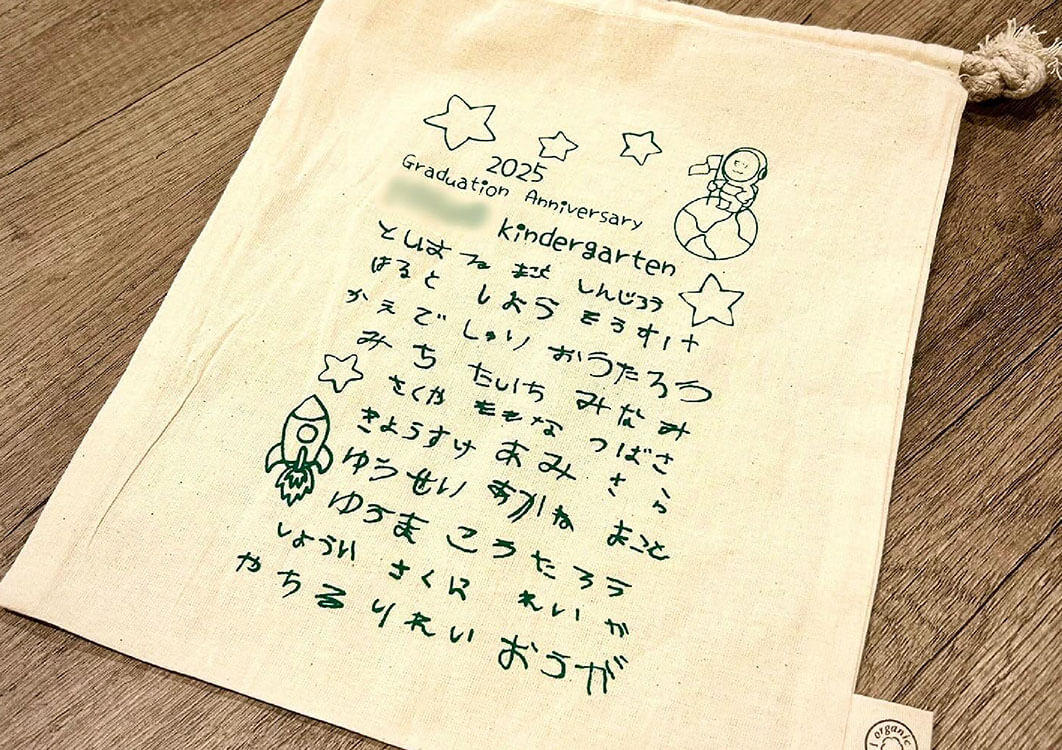 2025
Graduation Anniversary
kindergarten
としはる まこと しんじろう
はると しょう そうすけ
かえで しゅり おうたろう
みち たいち みなみ
さくや ももな つばさ
きょうすけ あみ さら
ゆうせい あかね まこと
ゆうま こうたろう
しょうい さくに れいか
やちる りれい おうが
organic